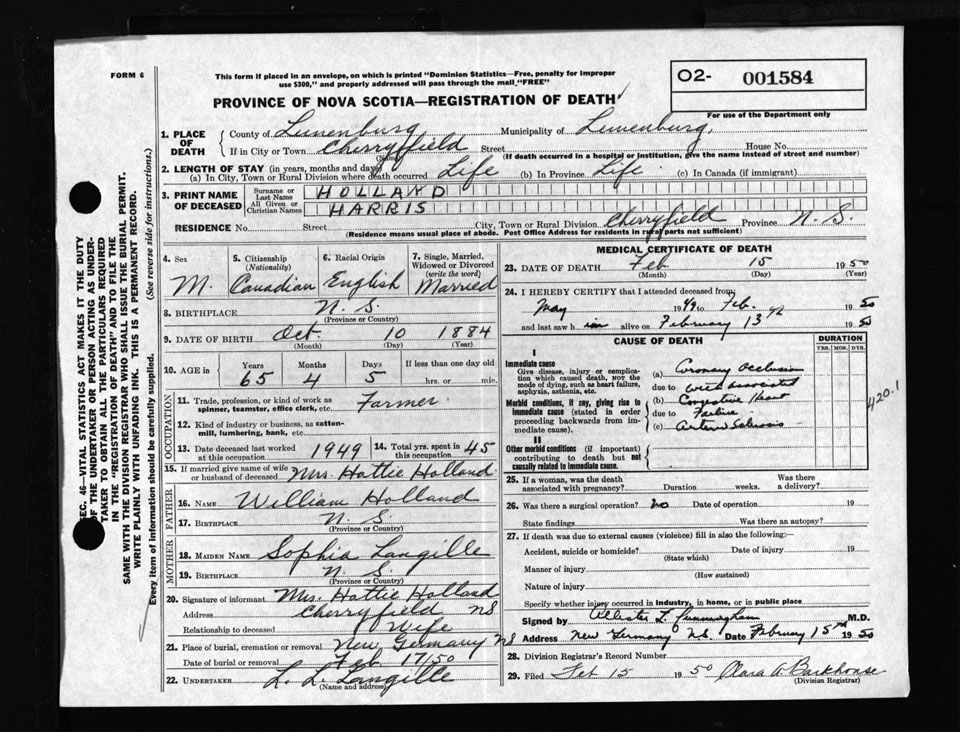 FORM 6
This form if placed in an envelope, on which is printed "Dominion Statistics—Free, penalty for improper
use $300," and properly addressed will pass through the mail "FREE"
O2- 001584
For use of the Department only
PROVINCE OF NOVA SCOTIA—REGISTRATION OF DEATH
1. PLACE OF DEATH
County of Lunenburg Municipality of Lunenburg,
If in City or Town Cherryfield Street House No.
(Name) (If death occurred in a hospital or institution, give the name instead of street and number)
2. LENGTH OF STAY (in years, months and days)
(a) In City, Town or Rural Division where death occurred Life (b) In Province Life (c) In Canada (if immigrant)
3. PRINT NAME OF DECEASED
Surname or Last Name HOLLAND
All Given or Christian Names HARRIS
RESIDENCE No. Street City, Town or Rural Division Cherryfield Province N.S.
(Residence means usual place of abode. Post Office Address for residents in rural parts not sufficient)
4. Sex M.
5. Citizenship (Nationality) Canadian
6. Racial Origin English
7. Single, Married, Widowed or Divorced (write the word) Married
8. BIRTHPLACE N.S.
(Province or Country)
9. DATE OF BIRTH Oct. 10 1884
(Month) (Day) (Year)
10. AGE in Years Months Days If less than one day old
65 4 5 hrs. or min.
OCCUPATION
11. Trade, profession, or kind of work as
spinner, teamster, office clerk, etc. Farmer
12. Kind of industry or business, as cotton-
mill, lumbering, bank, etc.
13. Date deceased last worked at this occupation 1949
14. Total yrs. spent in this occupation 45
15. If married give name of wife
or husband of deceased Mrs. Hattie Holland
FATHER
16. NAME William Holland
17. BIRTHPLACE N.S.
(Province or Country)
MOTHER
18. MAIDEN NAME Sophia Langille
19. BIRTHPLACE N.S.
(Province or Country)
20. Signature of informant Mrs. Hattie Holland
Address Cherryfield NS
Relationship to deceased Wife
21. Place of burial, cremation or removal New Germany NS
Date of burial or removal Feb 17/50
22. UNDERTAKER L. L. Langille
(Name and address)
MEDICAL CERTIFICATE OF DEATH
23. DATE OF DEATH Feb 15 1950
(Month) (Day) (Year)
24. I HEREBY CERTIFY that I attended deceased from:
May 1949 to Feb. 1950
and last saw him alive on February 13th 1950
CAUSE OF DEATH
DURATION
YRS. MOS. DYS.
I
Immediate cause
Give disease, injury or complica-
tion which caused death, NOT the
mode of dying, such as heart failure,
asphyxia, asthenia, etc.
(a) Coronary Occlusion
due to with associated
Morbid conditions, if any, giving rise to
immediate cause (stated in order
proceeding backwards from im-
mediate cause).
(b) Congestive Heart
due to Failure
(c) Arterio Sclerosis
420.1
II
Other morbid conditions (if important)
contributing to death but not
causally related to immediate cause.
25. If a woman, was the death
associated with pregnancy? Duration weeks. Was there
a delivery?
26. Was there a surgical operation? no Date of operation 19
State findings Was there an autopsy?
27. If death was due to external causes (violence) fill in also the following:—
Accident, suicide or homicide? Date of injury 19
(State which)
Manner of injury
(How sustained)
Nature of injury
Specify whether injury occurred in industry, in home, or in public place
Signed by Allister L. Cunningham M.D.
Address New Germany N.S. Date February 15th 1950
28. Division Registrar's Record Number
29. Filed Feb 15 1950 Clara A. Barkhouse
(Division Registrar)
SEC. 46—VITAL STATISTICS ACT MAKES IT THE DUTY
OF THE UNDERTAKER OR PERSON ACTING AS UNDER-
TAKER TO OBTAIN ALL THE PARTICULARS REQUIRED
IN THE "REGISTRATION OF DEATH" AND TO FILE THE
SAME WITH THE DIVISION REGISTRAR WHO SHALL ISSUE THE BURIAL PERMIT.
WRITE PLAINLY WITH UNFADING INK. THIS IS A PERMANENT RECORD.
Every item of information should be carefully supplied. (See reverse side for instructions.)